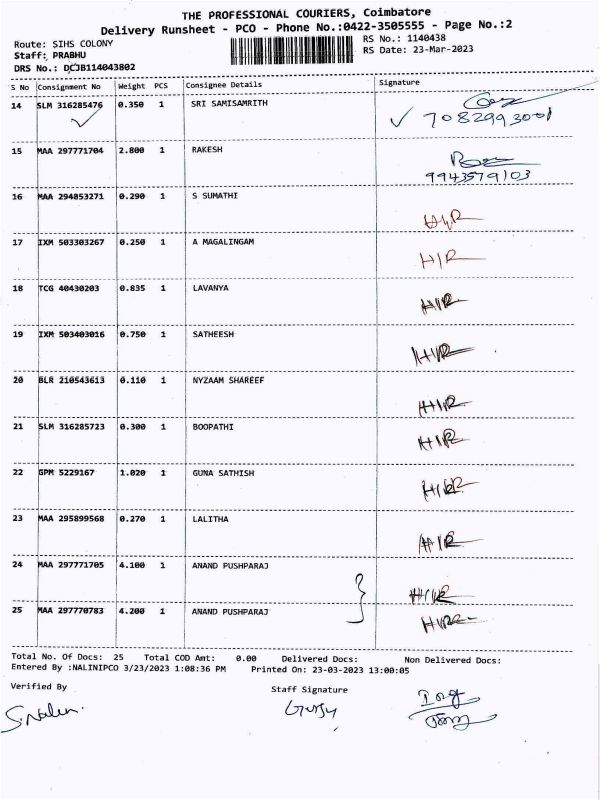 THE PROFESSIONAL COURIERS, Coimbatore
Delivery Runsheet - PCO - Phone No.:0422-3505555 - Page No.:2
Route: SIHS COLONY
RS No.: 1140438
Staff: PRABHU
RS Date: 23-Mar-2023
DRS No.: DCJB114043802
S No Consignment No Weight PCS Consignee Details Signature
14 SLM 316285476 0.350 1 SRI SAMISAMRITH
7082993001
15 MAA 297771704 2.800 1 RAKESH
9943579103
16 MAA 294853271 0.290 1 S SUMATHI H/R
17 IXM 503303267 0.250 1 A MAGALINGAM H/R
18 TCG 40430203 0.835 1 LAVANYA H/R
19 IXM 503403016 0.750 1 SATHEESH H/R
20 BLR 210543613 0.110 1 NYZAAM SHAREEF H/R
21 SLM 316285723 0.300 1 BOOPATHI H/R
22 GPM 5229167 1.020 1 GUNA SATHISH H/R
23 MAA 295899568 0.270 1 LALITHA H/R
24 MAA 297771705 4.100 1 ANAND PUSHPARAJ H/R
25 MAA 297770783 4.200 1 ANAND PUSHPARAJ H/R
Total No. Of Docs: 25 Total COD Amt: 0.00 Delivered Docs: Non Delivered Docs:
Entered By :NALINIPCO 3/23/2023 1:08:36 PM Printed On: 23-03-2023 13:00:05
Verified By
Staff Signature
S.Nalin.